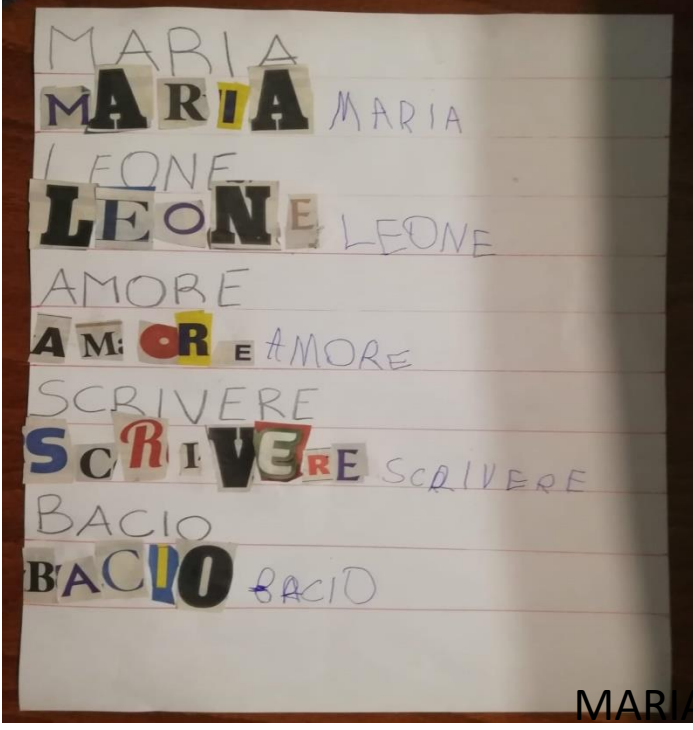 MARIA
MARIA MARIA
LEONE
LEONE LEONE
AMORE
AMORE AMORE
SCRIVERE
SCRIVERE SCRIVERE
BACIO
BACIO BACIO
MARIA